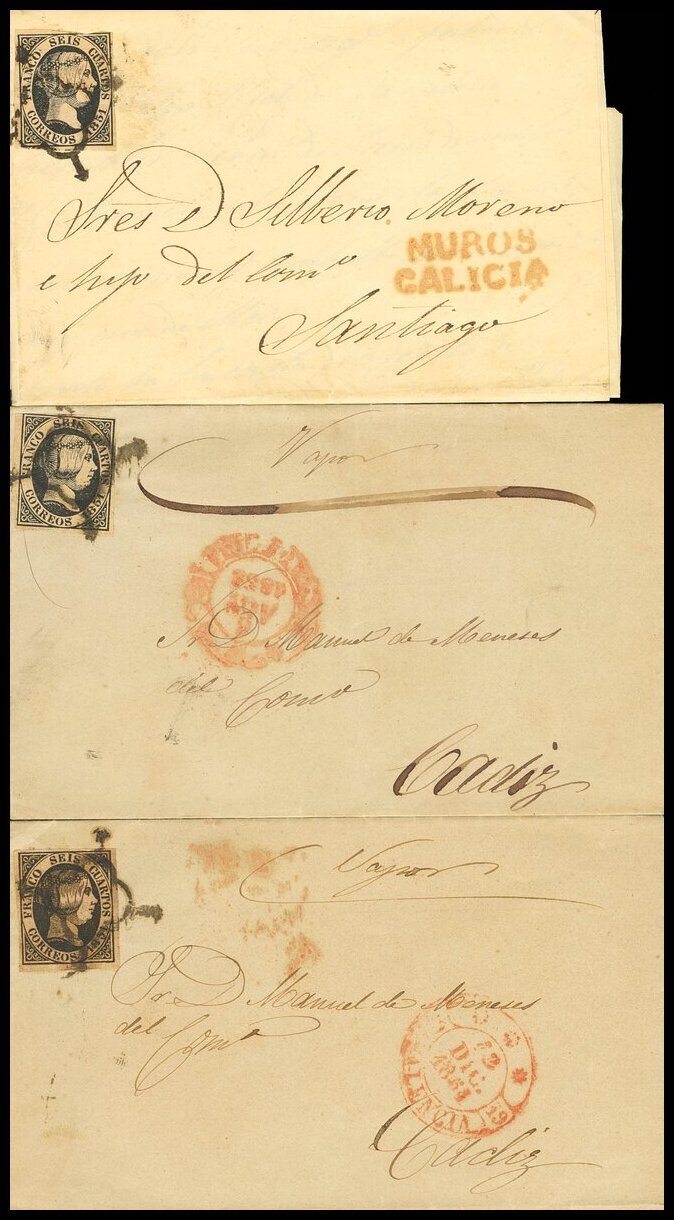 FRANCO SEIS CUARTOS
CORREOS 1851
Sres D Silberio Moreno
e hijo del Comº
MUROS
GALICIA
Santiago
FRANCO SEIS CUARTOS
CORREOS 1851
Vapor
Sr. D Manuel de Meneses
del Como
Cadiz
FRANCO SEIS CUARTOS
CORREOS 1851
Vapor
Sr. D Manuel de Meneses
del Comº
12
DIC.
1851
Cadiz